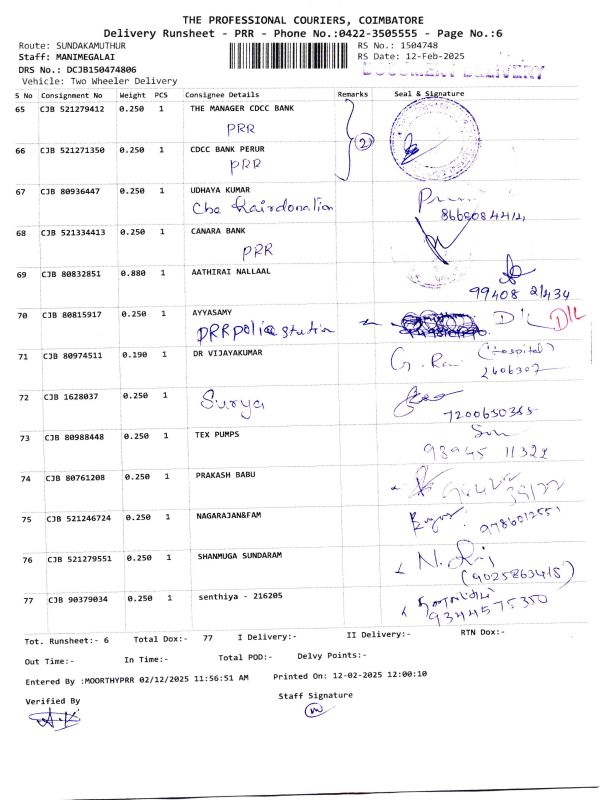 THE PROFESSIONAL COURIERS, COIMBATORE
Delivery Runsheet - PRR - Phone No.:0422-3505555 - Page No.:6
Route: SUNDAKAMUTHUR RS No.: 1504748
Staff: MANIMEGALAI RS Date: 12-Feb-2025
DRS No.: DCJB150474806 DOCUMENT DELIVERY
Vehicle: Two Wheeler Delivery
S No Consignment No Weight PCS Consignee Details Remarks Seal & Signature
65 CJB 521279412 0.250 1 THE MANAGER CDCC BANK
PRR
2
66 CJB 521271350 0.250 1 CDCC BANK PERUR
PRR
67 CJB 80936447 0.250 1 UDHAYA KUMAR
Cbe hairdonation
68 CJB 521334413 0.250 1 CANARA BANK
PRR
69 CJB 80832851 0.880 1 AATHIRAI NALLAAL
99408 21434
70 CJB 80815917 0.250 1 AYYASAMY
PRR police station D/L D/L
71 CJB 80974511 0.190 1 DR VIJAYAKUMAR
(Hospital)
2606307
72 CJB 1628037 0.250 1 Surya
7200650365
73 CJB 80988448 0.250 1 TEX PUMPS
98945 11322
74 CJB 80761208 0.250 1 PRAKASH BABU
75 CJB 521246724 0.250 1 NAGARAJAN&FAM
9786012551
76 CJB 521279551 0.250 1 SHANMUGA SUNDARAM
(9025863418)
77 CJB 90379034 0.250 1 senthiya - 216205
9344575350
Tot. Runsheet:- 6 Total Dox:- 77 I Delivery:- II Delivery:- RTN Dox:-
Out Time:- In Time:- Total POD:- Delvy Points:-
Entered By :MOORTHYPRR 02/12/2025 11:56:51 AM Printed On: 12-02-2025 12:00:10
Verified By Staff Signature